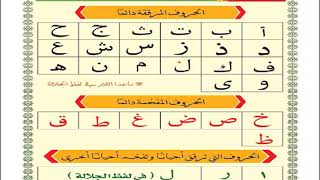 الحروف المرققة دائمًا
أ ب ت ث ج ح
د ذ ز س ش ع
ف ك ل م ن ه
و ى
* ماعدا اللام في لفظ الجلالة
الحروف المفخمة دائمًا
خ ص ض غ ط ق
ظ
الحروف التي ترقق أحيانًا وتفخم أحيانًا أخرى
ا ر ل ( في لفظ الجلالة )